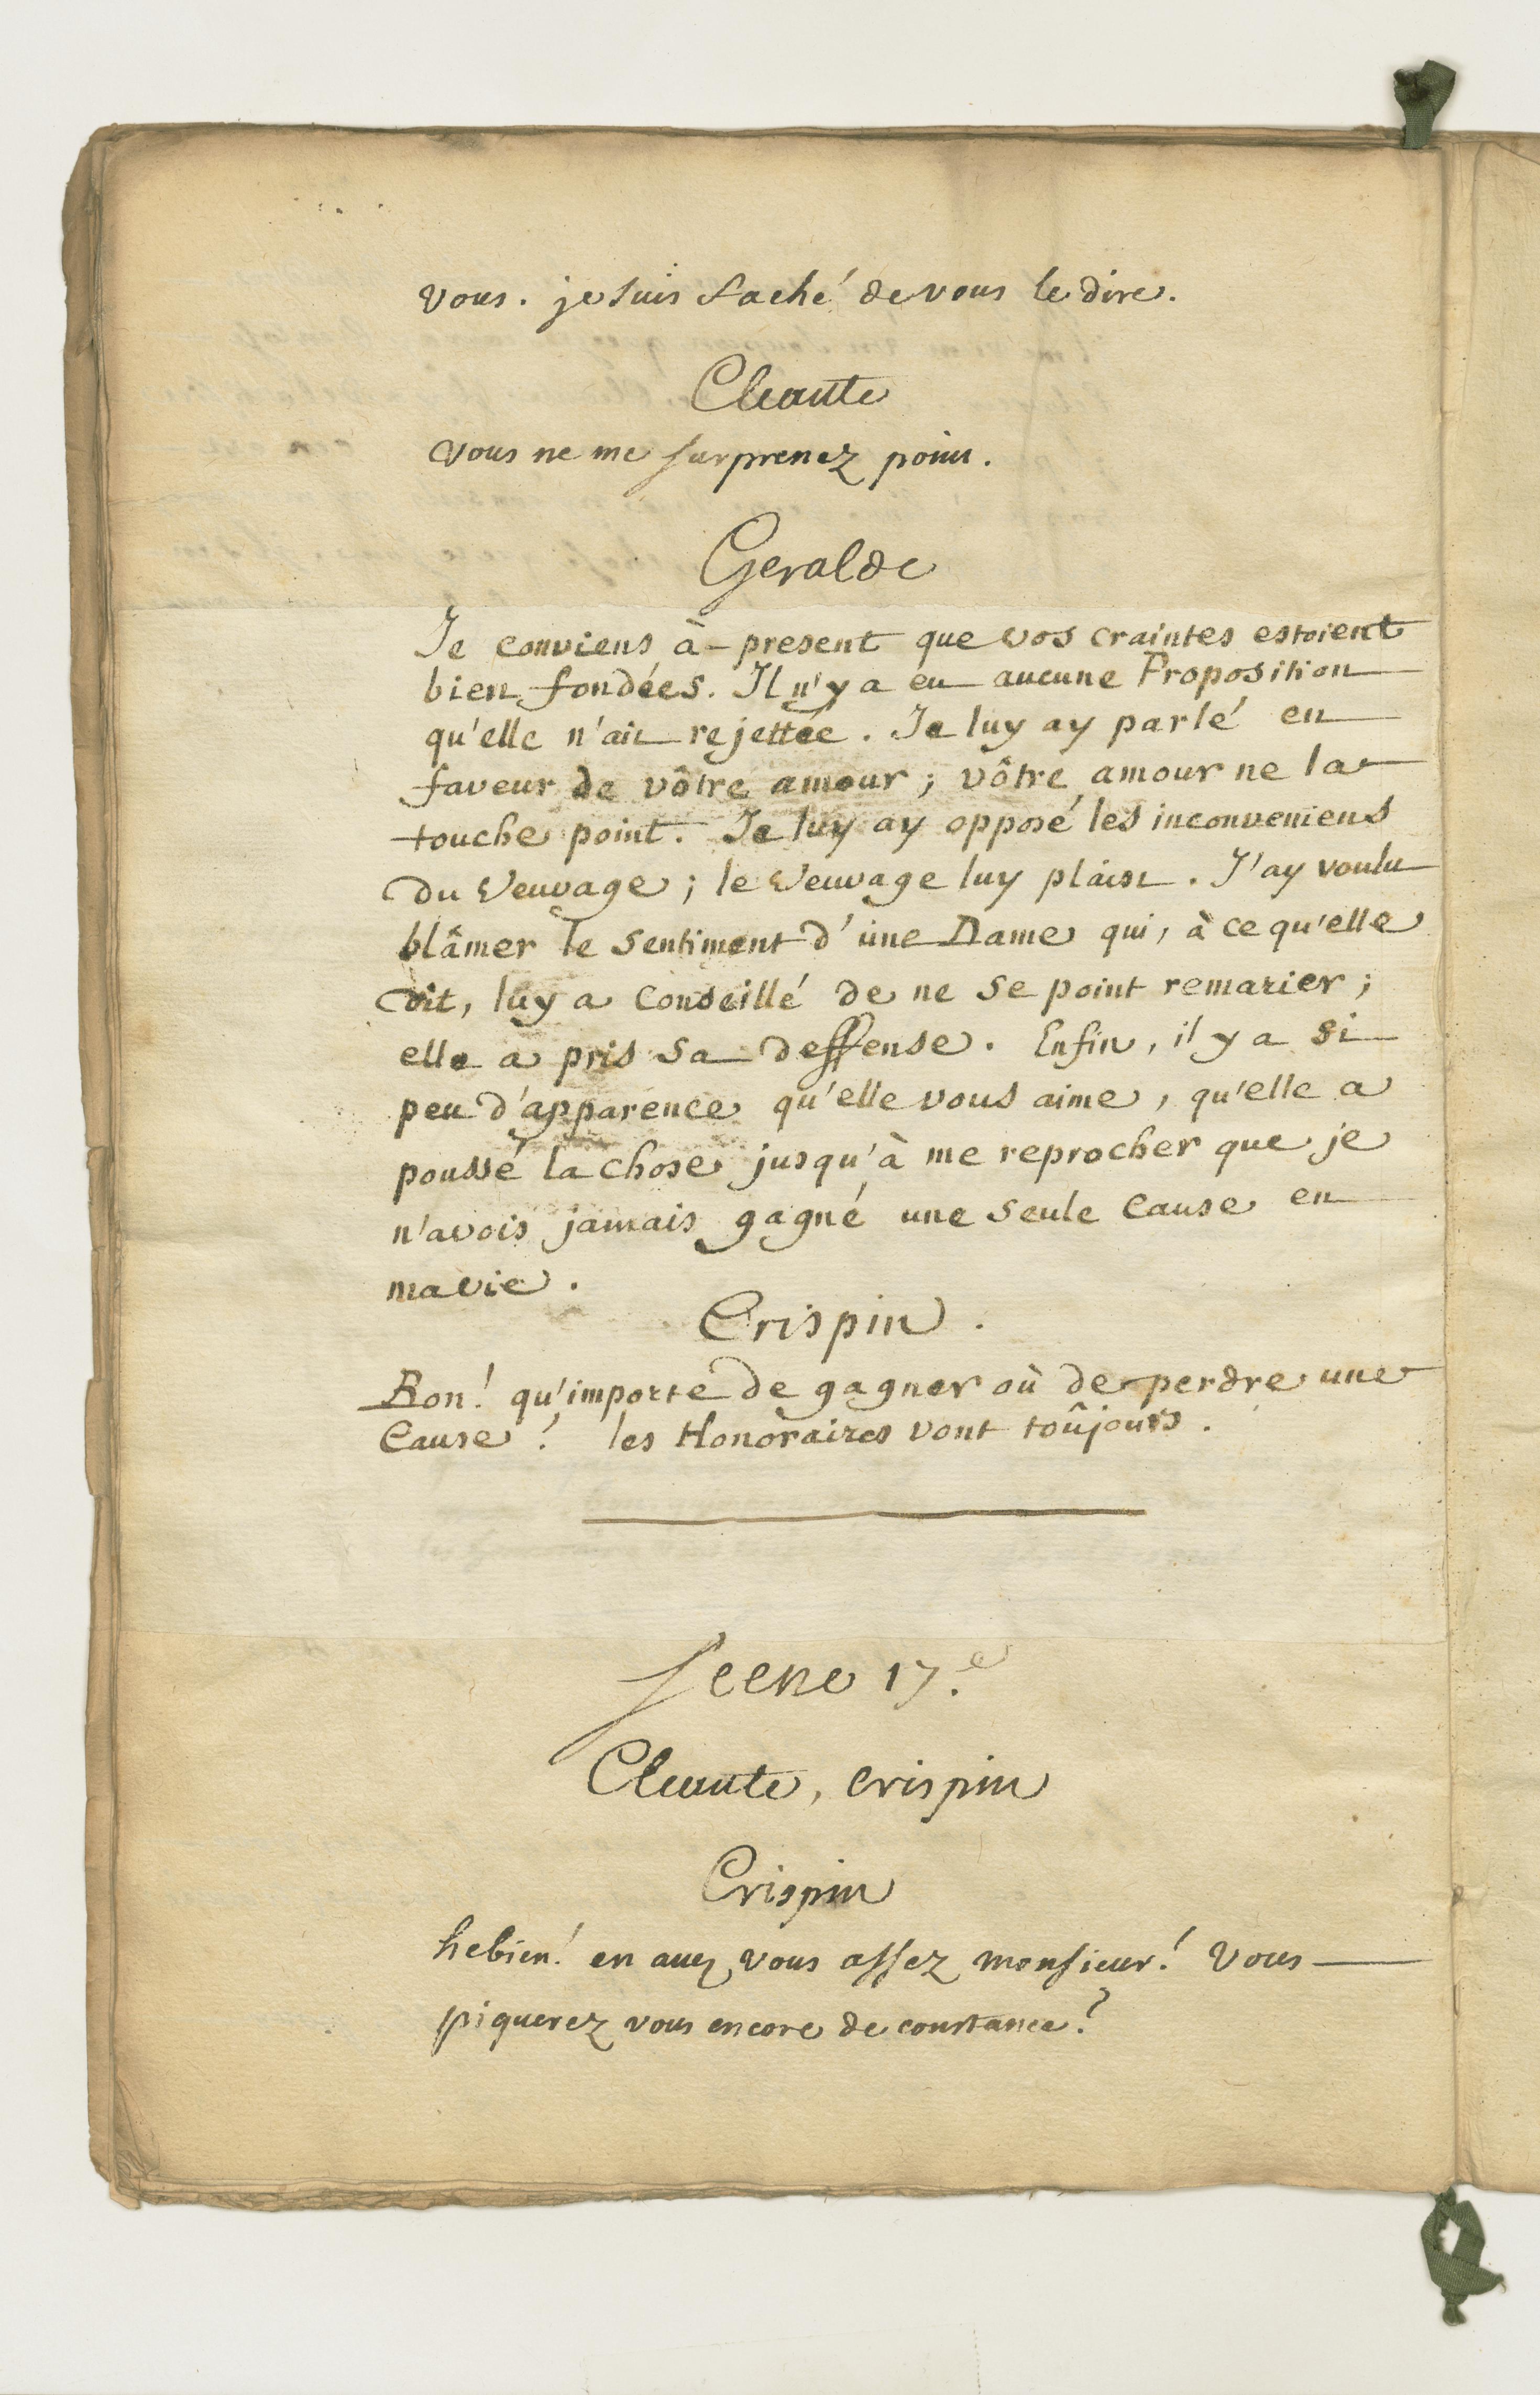 vous. je suis faché de vous le dire.
Cleante
vous ne me surprenez point.
Geralde
Je conviens à-present que vos craintes estoient
bien fondées. Il n'y a eu aucune Proposition
qu'elle n'ait rejettée. Je luy ay parlé en
faveur de vôtre amour; vôtre amour ne la
touche point. Je luy ay opposé les inconveniens
du veuvage; le veuvage luy plaist. J'ay voulu
blâmer le sentiment d'une Dame qui, à ce qu'elle
dit, luy a conseillé de ne se point remarier;
elle a pris sa deffense. Enfin, il y a si
peu d'apparence qu'elle vous aime, qu'elle a
poussé la chose jusqu'à me reprocher que je
n'avois jamais gagné une seule cause en
ma vie.
Crispin.
Bon! qu'importe de gagner où de perdre une
Cause! les Honoraires vont toûjours.
Scene 17.e
Cleante, crispin
Crispin
hebien! en avez vous assez monsieur! vous
piquerez vous encore de constance?